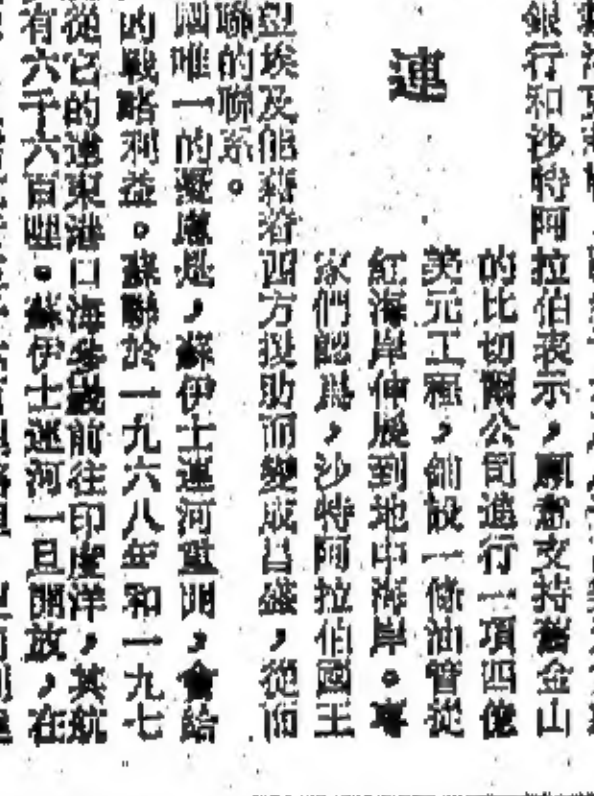 連
銀行和沙特阿拉伯表示，願意支持舊金山
的比切爾公司進行一項四億
美元工程，鋪設一條油管從
紅海岸伸展到地中海岸。專
家們認爲，沙特阿拉伯國王
望埃及能藉着西方援助而變成昌盛，從而
聯的聯系。
國唯一的疑慮是，蘇伊士運河重開，會給
的戰略利益。蘇聯於一九六八年和一九七
從它的遠東港口海參崴前往印度洋，其航
有六千六百哩。蘇伊士運河一旦開放，在